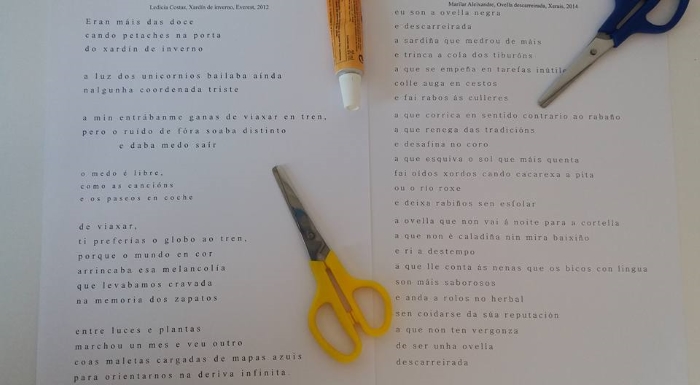 Ledicia Costas, Xardín de inverno, Everest, 2012
Eran máis das doce
cando petaches na porta
do xardín de inverno
a luz dos unicornios bailaba aínda
nalgunha coordenada triste
a min entrábanme ganas de viaxar en tren,
pero o ruído de fóra soaba distinto
e daba medo saír
o medo é libre,
como as cancións
e os paseos en coche
de viaxar,
ti preferías o globo ao tren,
porque o mundo en cor
arrincaba esa melancolía
que levabamos cravada
na memoria dos zapatos
entre luces e plantas
marchou un mes e veu outro
coas maletas cargadas de mapas azuis
para orientarnos na deriva infinita
Marilar Aleixandre, Ovella descarreirada, Xerais, 2014
eu son a ovella negra
e descarreirada
a sardiña que medrou de máis
e trinca a cola dos tiburóns
a que se empeña en tarefas inútiles
colle auga en cestos
e fai rabos ás culleres
a que corrica en sentido contrario ao rabaño
a que renega das tradicións
e desafina no coro
a que esquiva o sol que máis quenta
fai oídos xordos cando cacarexa a pita
ou o río roxe
e deixa rabiños sen esfolar
a ovella que non vai á noite para a cortella
a que non é caladiña nin mira baixiño
e ri a destempo
a que lle conta ás nenas que os bicos con lingua
son máis saborosos
e anda a rolos no herbal
sen coidarse da súa reputación
a que non ten vergonza
de ser unha ovella
descarreirada